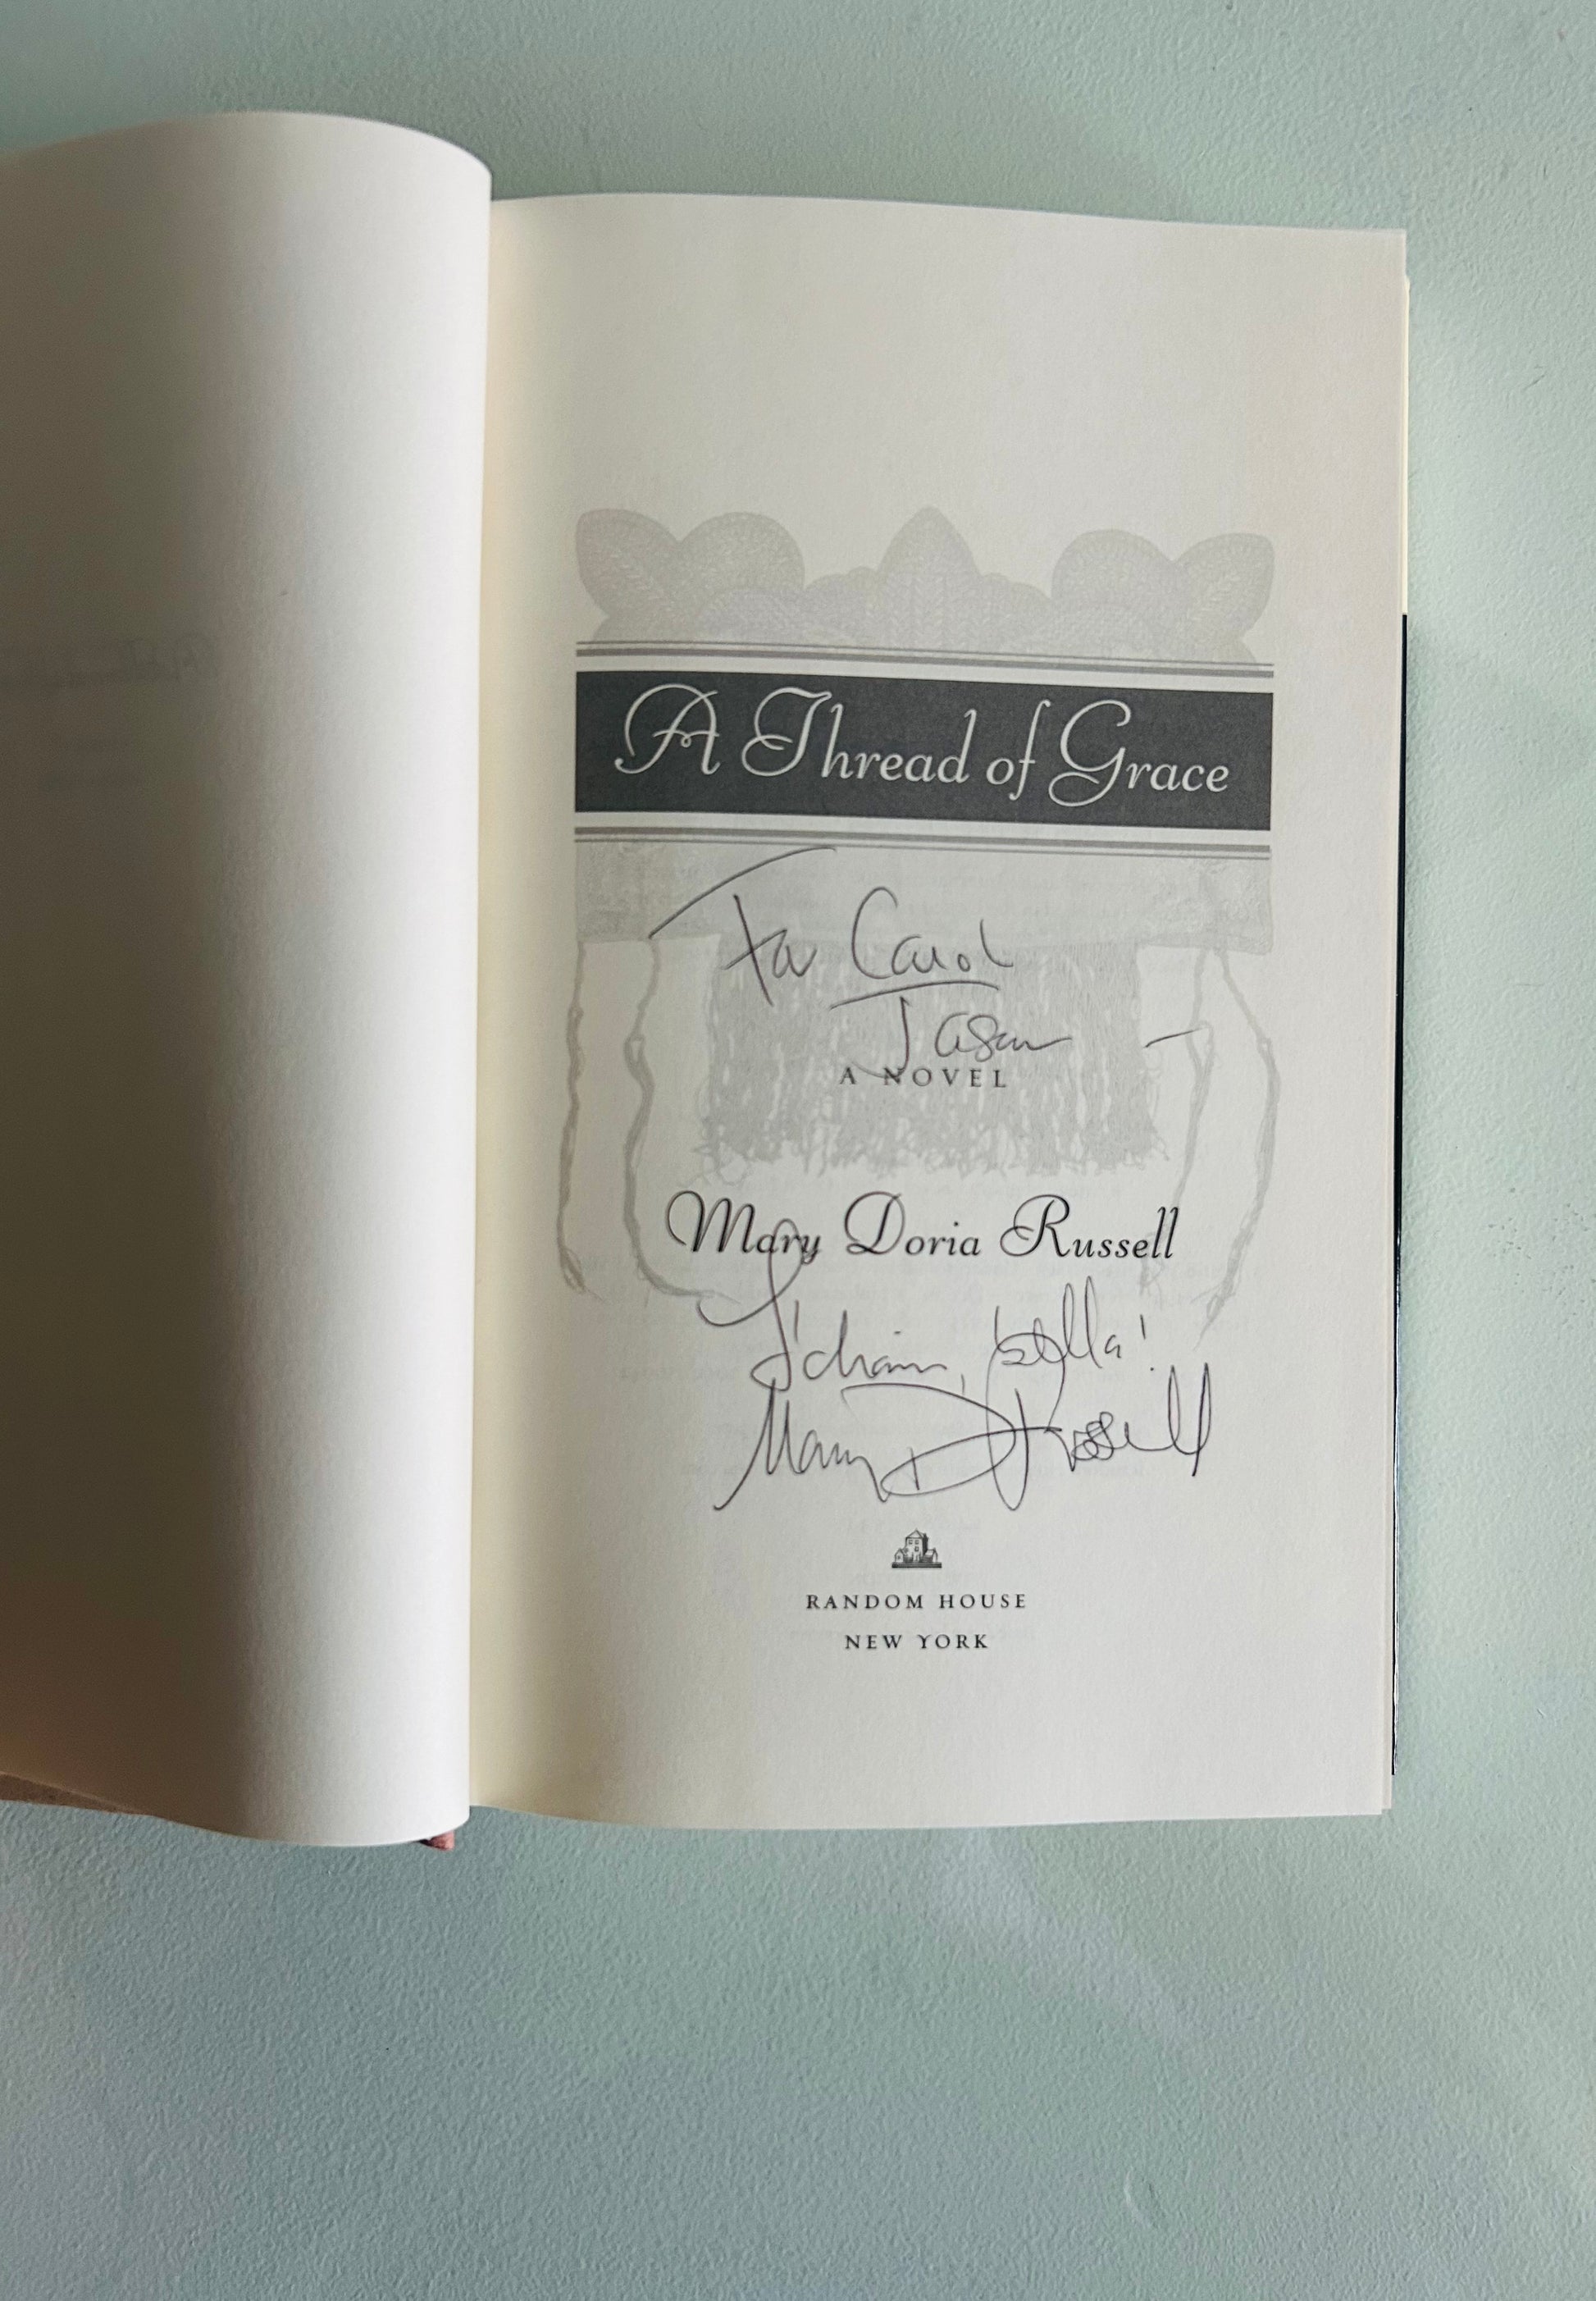 A Thread of Grace
For Carol
Jason —
A NOVEL
Mary Doria Russell
L'chaim, bella!
Mary D Russell
RANDOM HOUSE
NEW YORK